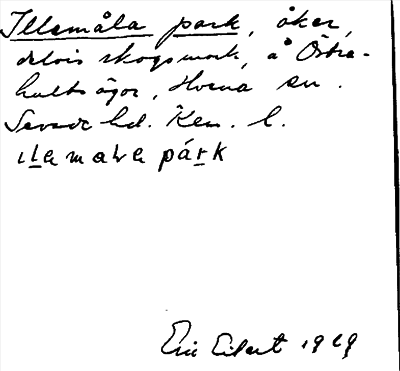 Illemåla park, åker,
delvis skogsmark, å Östra-
hults ägor, Hvena sn.
Sevede hd. Kalm. l.
ɩlamaɫa párk
Eric Eilert 1929